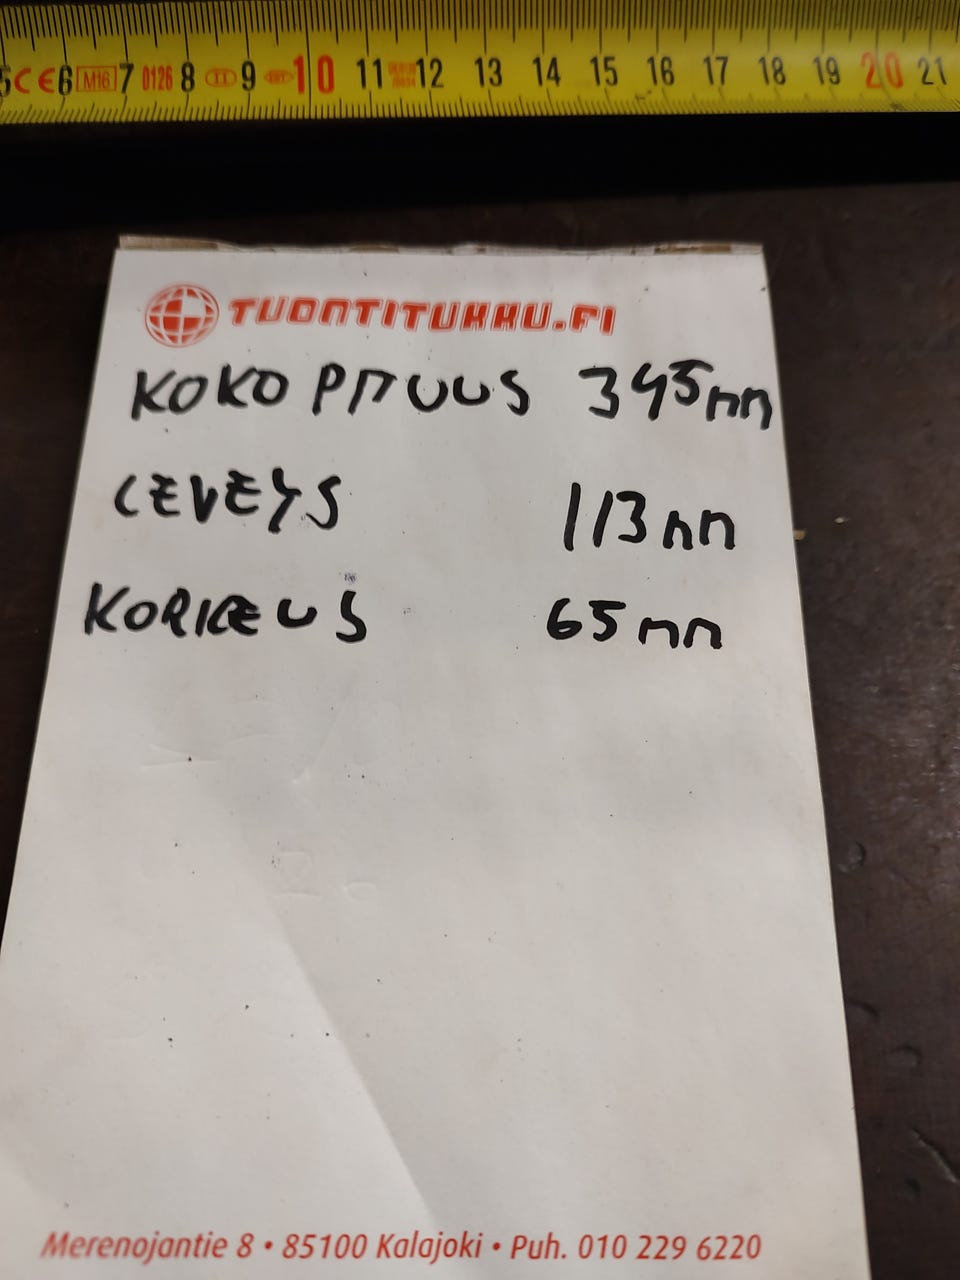 5 CE 6 M16 7 0126 8 II 9 10 11 12 13 14 15 16 17 18 19 20 21
TUONTITUKKU.FI
KOKO PITUUS 345mm
LEVEYS 113mm
KORKEUS 65mm
Merenojantie 8 • 85100 Kalajoki • Puh. 010 229 6220